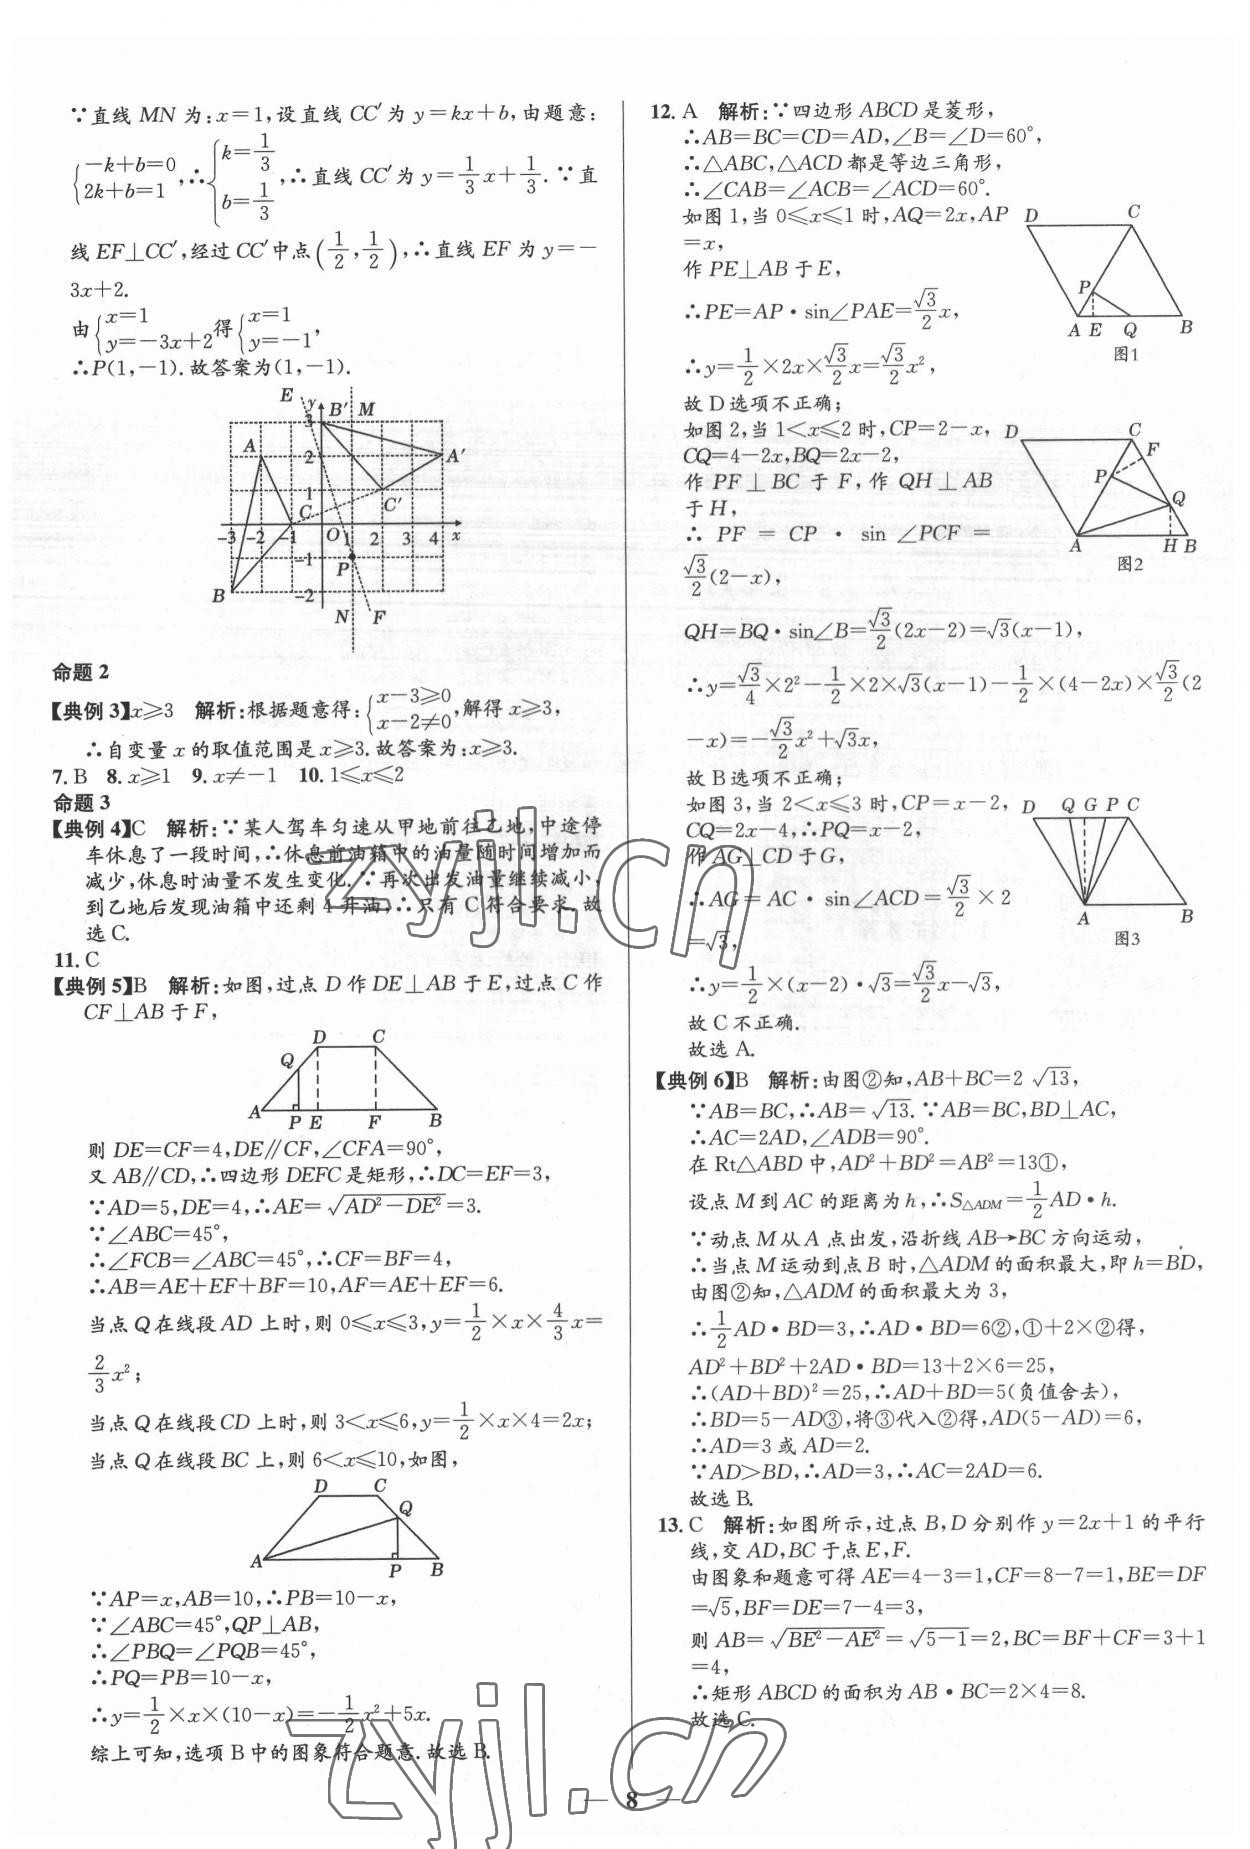 ∵直线 MN 为:x=1,设直线 CC′为 y=kx+b,由题意:
{-k+b=0
2k+b=1 ,∴{k=1/3
b=1/3 ,∴直线 CC′为 y=1/3x+1/3.∵直
线 EF⊥CC′,经过 CC′中点(1/2,1/2),∴直线 EF 为 y=-
3x+2.
由{x=1
y=-3x+2得{x=1
y=-1,
∴P(1,-1).故答案为(1,-1).
E y B′ M
3
A 2 A′
1 C C′
-3 -2 -1 O 1 2 3 4 x
-1 P
B -2
N F
命题 2
【典例 3】x≥3 解析:根据题意得:{x-3≥0
x-2≠0,解得 x≥3,
∴自变量 x 的取值范围是 x≥3.故答案为:x≥3.
7. B 8. x≥1 9. x≠-1 10. 1≤x≤2
命题 3
【典例 4】C 解析:∵某人驾车匀速从甲地前往乙地,中途停
车休息了一段时间,∴休息前油箱中的油量随时间增加而
减少,休息时油量不发生变化.∵再次出发油量继续减小,
到乙地后发现油箱中还剩 4 升油,∴只有 C 符合要求.故
选 C.
11. C
【典例 5】B 解析:如图,过点 D 作 DE⊥AB 于 E,过点 C 作
CF⊥AB 于 F,
D C
Q
A P E F B
则 DE=CF=4,DE∥CF,∠CFA=90°,
又 AB∥CD,∴四边形 DEFC 是矩形,∴DC=EF=3,
∵AD=5,DE=4,∴AE=√(AD²-DE²)=3.
∵∠ABC=45°,
∴∠FCB=∠ABC=45°,∴CF=BF=4,
∴AB=AE+EF+BF=10,AF=AE+EF=6.
当点 Q 在线段 AD 上时,则 0≤x≤3,y=1/2×x×4/3x=
2/3x²;
当点 Q 在线段 CD 上时,则 3<x≤6,y=1/2×x×4=2x;
当点 Q 在线段 BC 上,则 6<x≤10,如图,
D C
Q
A P B
∵AP=x,AB=10,∴PB=10-x,
∵∠ABC=45°,QP⊥AB,
∴∠PBQ=∠PQB=45°,
∴PQ=PB=10-x,
∴y=1/2×x×(10-x)=-1/2x²+5x.
综上可知,选项 B 中的图象符合题意.故选 B.
12. A 解析:∵四边形 ABCD 是菱形,
∴AB=BC=CD=AD,∠B=∠D=60°,
∴△ABC,△ACD 都是等边三角形,
∴∠CAB=∠ACB=∠ACD=60°.
如图 1,当 0≤x≤1 时,AQ=2x,AP
=x,
作 PE⊥AB 于 E,
∴PE=AP·sin∠PAE=√3/2x,
∴y=1/2×2x×√3/2x=√3/2x²,
故 D 选项不正确;
D C
P
A E Q B
图1
如图 2,当 1<x≤2 时,CP=2-x,
CQ=4-2x,BQ=2x-2,
作 PF⊥BC 于 F,作 QH⊥AB
于 H,
∴ PF = CP · sin ∠PCF =
√3/2(2-x),
D C
F
P
Q
A H B
图2
QH=BQ·sin∠B=√3/2(2x-2)=√3(x-1),
∴y=√3/4×2²-1/2×2×√3(x-1)-1/2×(4-2x)×√3/2(2
-x)=-√3/2x²+√3x,
故 B 选项不正确;
如图 3,当 2<x≤3 时,CP=x-2,
CQ=2x-4,∴PQ=x-2,
作 AG⊥CD 于 G,
∴AG=AC·sin∠ACD=√3/2×2
=√3,
∴y=1/2×(x-2)·√3=√3/2x-√3,
D Q G P C
A B
图3
故 C 不正确.
故选 A.
【典例 6】B 解析:由图②知,AB+BC=2√13,
∵AB=BC,∴AB=√13.∵AB=BC,BD⊥AC,
∴AC=2AD,∠ADB=90°.
在 Rt△ABD 中,AD²+BD²=AB²=13①,
设点 M 到 AC 的距离为 h,∴S△ADM=1/2AD·h.
∵动点 M 从 A 点出发,沿折线 AB→BC 方向运动,
∴当点 M 运动到点 B 时,△ADM 的面积最大,即 h=BD,
由图②知,△ADM 的面积最大为 3,
∴1/2AD·BD=3,∴AD·BD=6②,①+2×②得,
AD²+BD²+2AD·BD=13+2×6=25,
∴(AD+BD)²=25,∴AD+BD=5(负值舍去),
∴BD=5-AD③,将③代入②得,AD(5-AD)=6,
∴AD=3 或 AD=2.
∵AD>BD,∴AD=3,∴AC=2AD=6.
故选 B.
13. C 解析:如图所示,过点 B,D 分别作 y=2x+1 的平行
线,交 AD,BC 于点 E,F.
由图象和题意可得 AE=4-3=1,CF=8-7=1,BE=DF
=√5,BF=DE=7-4=3,
则 AB=√(BE²-AE²)=√(5-1)=2,BC=BF+CF=3+1
=4,
∴矩形 ABCD 的面积为 AB·BC=2×4=8.
故选 C.
zyjl.cn
zyjl.cn
— 8 —